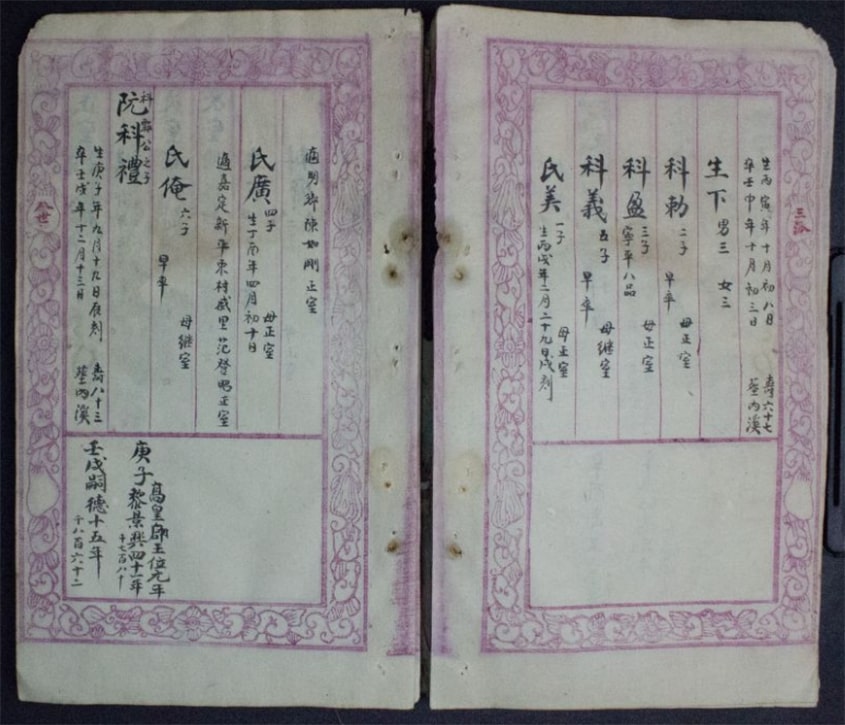 生丙寅年十月初八日 壽六十七
卒壬申年十月初三日 塟內溪
生下 男三 女三
科勅 二子 早卒 母正室
科盈 三子 寧平八品 母正室
科義 五子 早卒 母繼室
氏美 一子 母正室
生丙戌年二月二十九日戌刻
適明鄉陳如剛正室
氏廣 四子 母正室
生丁酉年四月初十日
適嘉定新平東村威里范
正室
氏俺 六子 早卒 母繼室
公之子
阮科禮
生庚子年九月十九日辰刻 壽八十三
卒壬戌年十二月十三日 塟內溪
高皇即王位元年
庚子黎景興四十一年
千七百八十
壬戌嗣德十五年
千八百六十二
八世